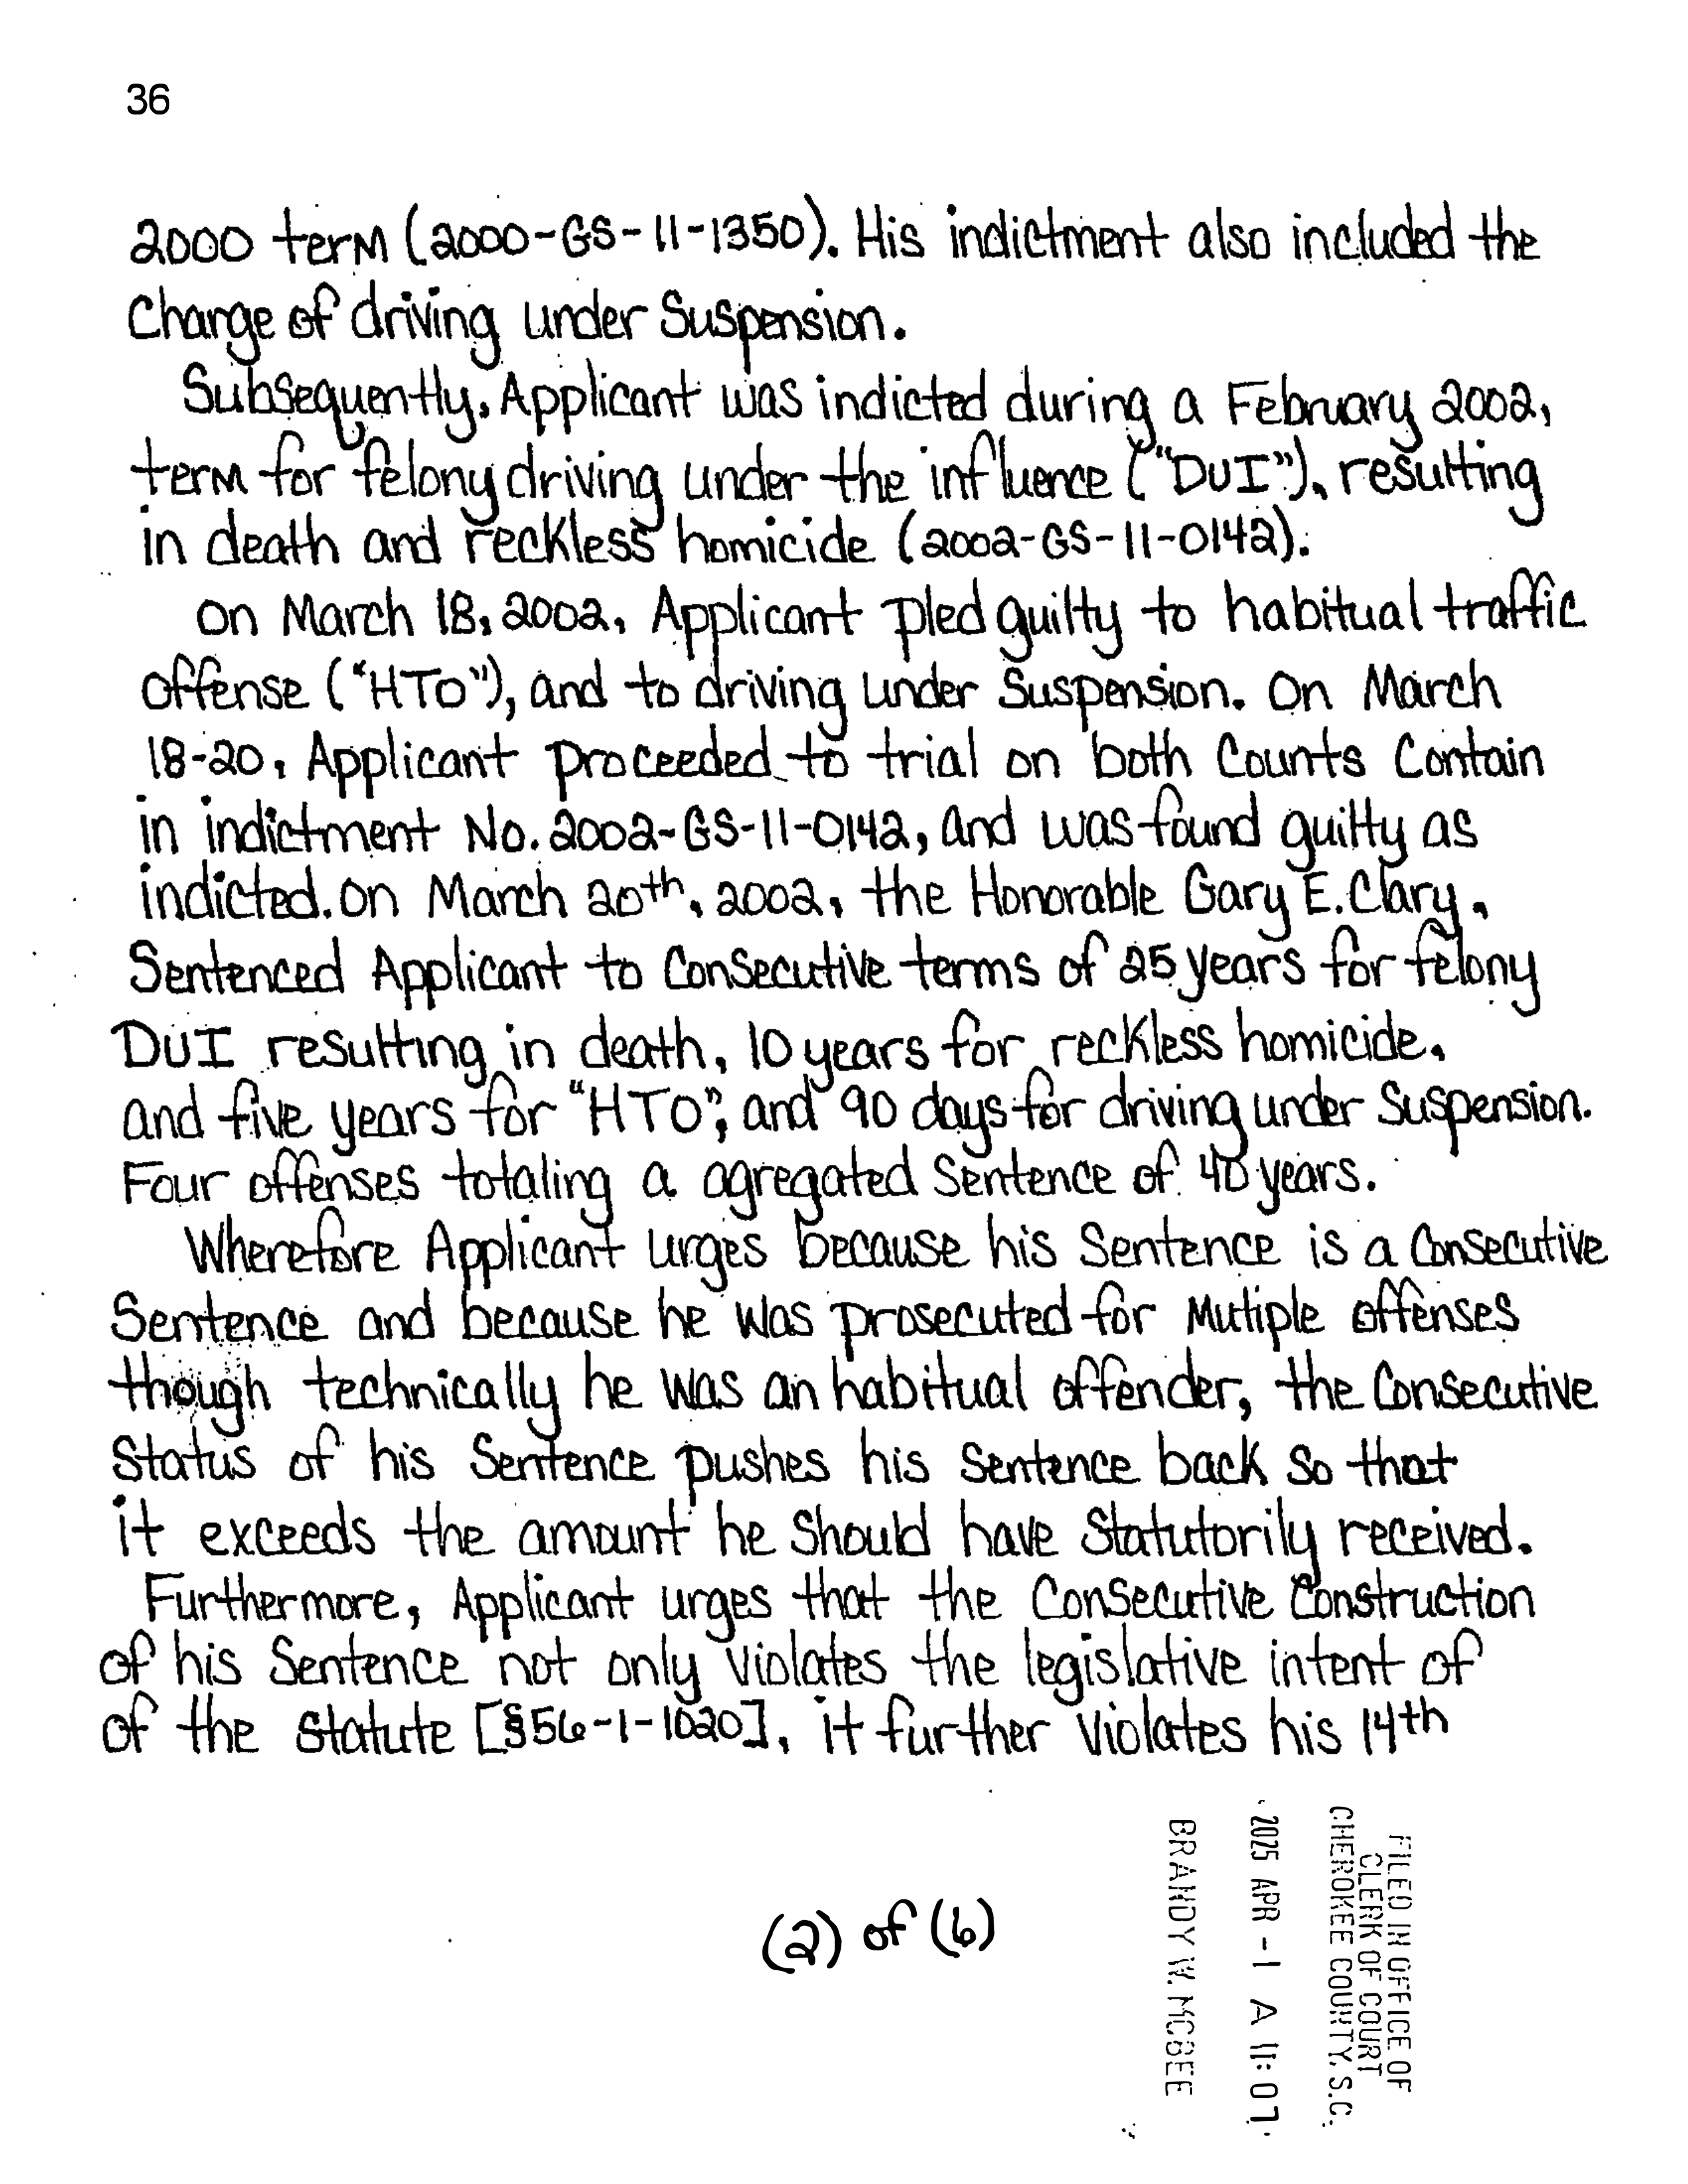 36
2000 term (2000-GS-11-1350). His indictment also included the
Charge of driving under Suspension.
Subsequently, Applicant was indicted during a February 2002,
term for felony driving under the influence ("DUI"), resulting
in death and reckless homicide (2002-GS-11-0142).
On March 18, 2002, Applicant pled guilty to habitual traffic
offense ("HTO"), and to driving under Suspension. On March
18-20, Applicant proceeded to trial on both Counts Contain
in indictment No. 2002-GS-11-0142, and was found guilty as
indicted. On March 20th, 2002, the Honorable Gary E. Clary,
Sentenced Applicant to Consecutive terms of 25 years for felony
DUI resulting in death, 10 years for reckless homicide,
and five years for "HTO", and 90 days for driving under Suspension.
Four offenses totaling a agregated Sentence of 40 years.
Wherefore Applicant urges because his Sentence is a Consecutive
Sentence and because he was prosecuted for Mutiple offenses
though technically he was an habitual offender, the Consecutive
Status of his Sentence pushes his Sentence back so that
it exceeds the amount he Should have Statutorily received.
Furthermore, Applicant urges that the Consecutive Construction
of his Sentence not only violates the legislative intent of
of the statute [§56-1-1020], it further violates his 14th
(2) of (6)
FILED IN OFFICE OF
CLERK OF COURT
CHEROKEE COUNTY, S.C.
2025 APR -1 A 11:07
BRANDY W. MCBEE